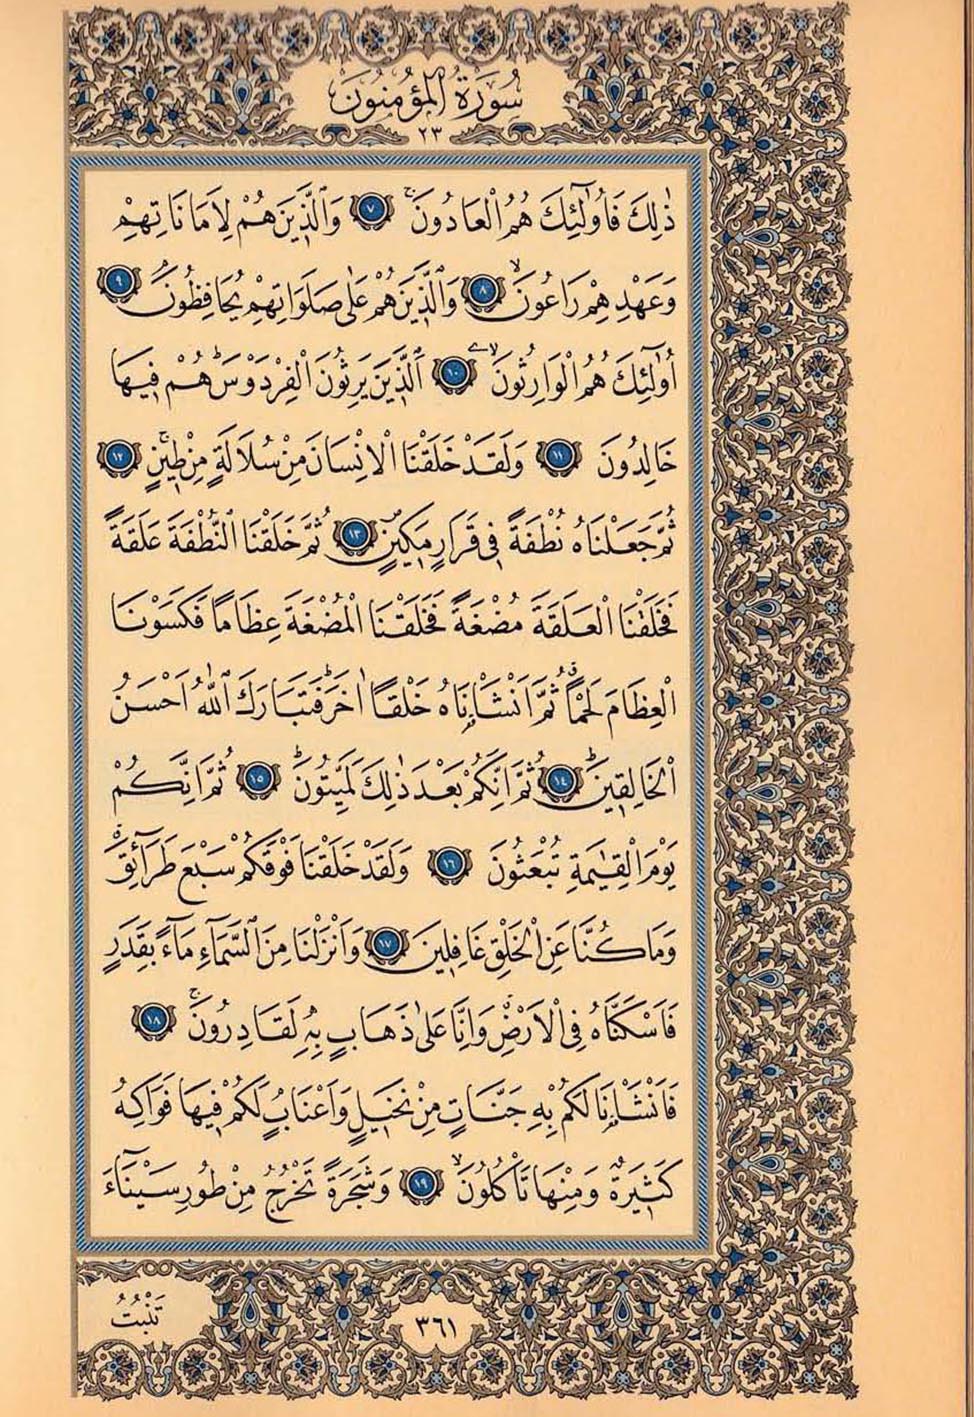 سُورَةُ الْمُؤْمِنُونَ
٢٣
ذٰلِكَ فَاُولٰٓئِكَ هُمُ الْعَادُونَۚ ٧ وَالَّذ۪ينَ هُمْ لِاَمَانَاتِهِمْ
وَعَهْدِهِمْ رَاعُونَۙ ٨ وَالَّذ۪ينَ هُمْ عَلٰى صَلَوَاتِهِمْ يُحَافِظُونَۢ ٩
اُولٰٓئِكَ هُمُ الْوَارِثُونَۙ ١٠ اَلَّذ۪ينَ يَرِثُونَ الْفِرْدَوْسَۜ هُمْ ف۪يهَا
خَالِدُونَ ١١ وَلَقَدْ خَلَقْنَا الْاِنْسَانَ مِنْ سُلَالَةٍ مِنْ ط۪ينٍۚ ١٢
ثُمَّ جَعَلْنَاهُ نُطْفَةً ف۪ي قَرَارٍ مَك۪ينٍۖ ١٣ ثُمَّ خَلَقْنَا النُّطْفَةَ عَلَقَةً
فَخَلَقْنَا الْعَلَقَةَ مُضْغَةً فَخَلَقْنَا الْمُضْغَةَ عِظَامًا فَكَسَوْنَا
الْعِظَامَ لَحْمًاۗ ثُمَّ اَنْشَأْنَاهُ خَلْقًا اٰخَرَۜ فَتَبَارَكَ اللّٰهُ اَحْسَنُ
الْخَالِق۪ينَۜ ١٤ ثُمَّ اِنَّكُمْ بَعْدَ ذٰلِكَ لَمَيِّتُونَۜ ١٥ ثُمَّ اِنَّكُمْ
يَوْمَ الْقِيٰمَةِ تُبْعَثُونَ ١٦ وَلَقَدْ خَلَقْنَا فَوْقَكُمْ سَبْعَ طَرَٓائِقَۗ
وَمَا كُنَّا عَنِ الْخَلْقِ غَافِل۪ينَ ١٧ وَاَنْزَلْنَا مِنَ السَّمَٓاءِ مَٓاءً بِقَدَرٍ
فَاَسْكَنَّاهُ فِي الْاَرْضِۗ وَاِنَّا عَلٰى ذَهَابٍ بِه۪ لَقَادِرُونَۚ ١٨
فَاَنْشَأْنَا لَكُمْ بِه۪ جَنَّاتٍ مِنْ نَخ۪يلٍ وَاَعْنَابٍۢ لَكُمْ ف۪يهَا فَوَاكِهُ
كَث۪يرَةٌ وَمِنْهَا تَأْكُلُونَۙ ١٩ وَشَجَرَةً تَخْرُجُ مِنْ طُورِ سَيْنَٓاءَ
تَنْبُتُ
٣٦١